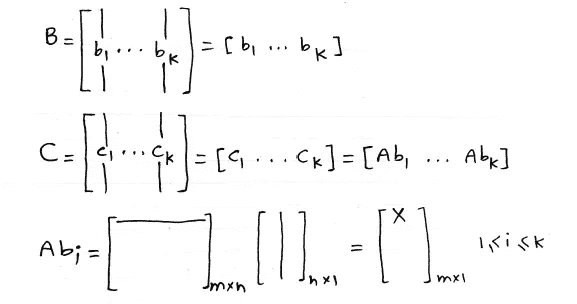 B = [ b₁ ... bₖ ] = [ b₁ ... bₖ ]
C = [ c₁ ... cₖ ] = [ c₁ ... cₖ ] = [ Ab₁ ... Abₖ ]
Abᵢ = [ ]ₘₓₙ [ ]ₙₓ₁ = [ X ]ₘₓ₁ 1 ≤ i ≤ k